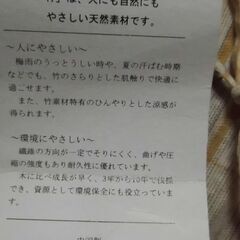 は、人にも自然にも
やさしい天然素材です。
～人にやさしい～
梅雨のうっとうしい時や、夏の汗ばむ時期
などでも、竹のさらりとした肌触りで快適に
過ごせます。
また、竹素材特有のひんやりとした涼感が
得られます。
～環境にやさしい～
繊維の方向が一定でそりにくく、曲げや圧
縮の強度もあり耐久性に優れています。
木に比べ成長が早く、3年から10年で伐採
でき、資源として環境保全にも役立っていま
す。